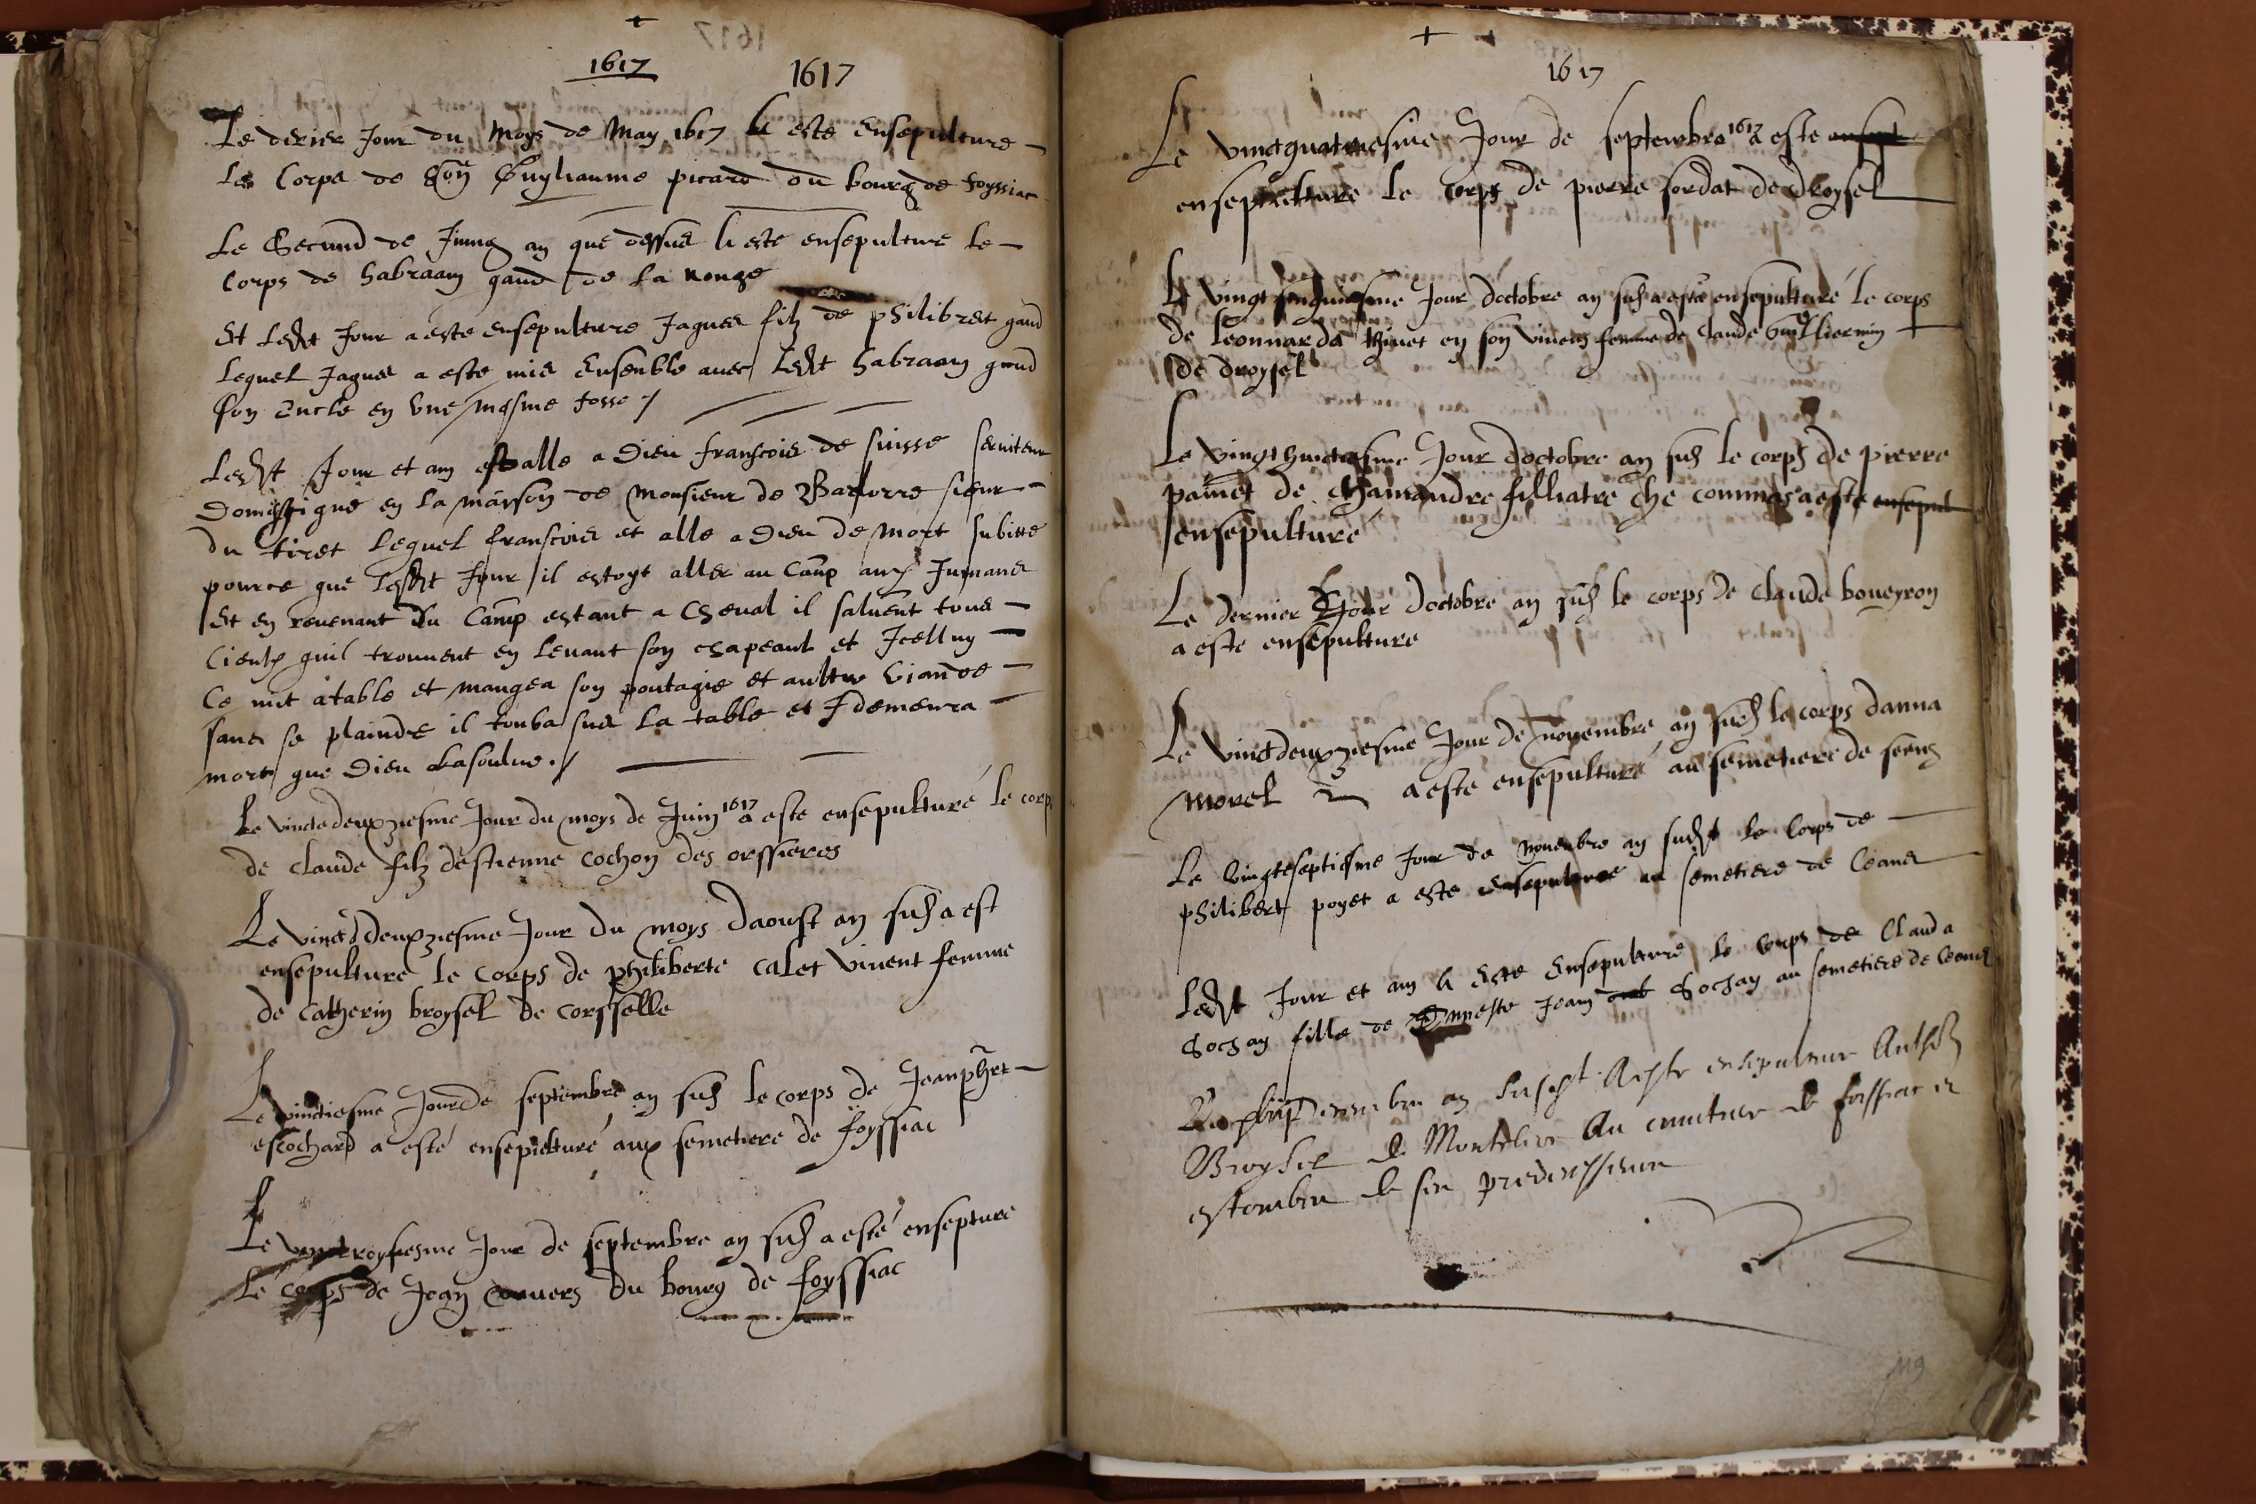 1617 1617
Le derier Jour du Moys de May 1617 A este ensepulture
Le Corps de Guyliaume picard du bourg de foyssiac
Le Second de Juing an que dessus A este ensepulture le
Corps de habraam gaud de la
Et Ledit Jour a este ensepulture Jaques filz de philibert gaud
lequel Jaques a este mis ensenble avec ledit habraam gaud
son oncle en une mesme fosse
Ledit Jour et an est alle a Dieu franscois de suisse serviteur
Domestique en la maison de monsieur de sieur
du tiret lequel franscois et alle a Dieu de mort subitte
pource que ledit Jour il estoyt aller au Camp aux
Et en revenant du Camp estant a cheval il saluent tous
Cieulx quil trouvent en levant son chapeault et Icelluy
Ce mit a table et mangea son poutagie et aultre viande
sans se plaindre il tonba sus la table et J demeura
mort que Dieu labsoulve
Le vinctedeuxziesme Jour du moys de Juin 1617 a este ensepulturé le corps
de claude filz destienne cochon des orssieres
Le vinctddeuxziesme Jour du moys daoust an sus a est
ensepulture le corps de philiberte calet vivent femme
de catherin broysel de corsselle
Le vinctiesme Jour de septembre an sus le corps de
escochard a esté ensepulturé aux semetiere de foyssiac
Le vinctroysiesme Jour de septembre an sus a esté ensepture
le corps de Jean convers du bourg de foyssiac
1617
Le vinctquatriesme Jour de septembre 1617 a este ensept
ensepulture le corps de pierre sordat de droysel
Le vingt sinquiesme Jour doctobre an sus a esté ensepulturé le corps
de leonnarda en son vivens femme de claude Guilliermin
de droysel
Le vingthuictiesme Jour doctobre an sus le corps de pierre
de chamandre filliatre che commas a este ensepul
ensepulturé
Le dernier Jour doctobre an sus le corps de claude boveyron
a este ensepulture
Le vinctdeuxziesme Jour de novembre an sus le corps danna
morel a esté ensepulturé au semetiere de
Le vingteseptiesme Jour de Novembre an sudit le Corps de
philibert poyet a este ensepulture au semetiere de Ceans
Ledit Jour et an A Este Ensepulture le Corps de Clauda
Bochay fille de Jean Bochay au semetiere de Ceans
decembre an susdit A este ensepulture
Broysel de Au cimitiere de foissiac et
es tombeu de ses predecesseurs
119